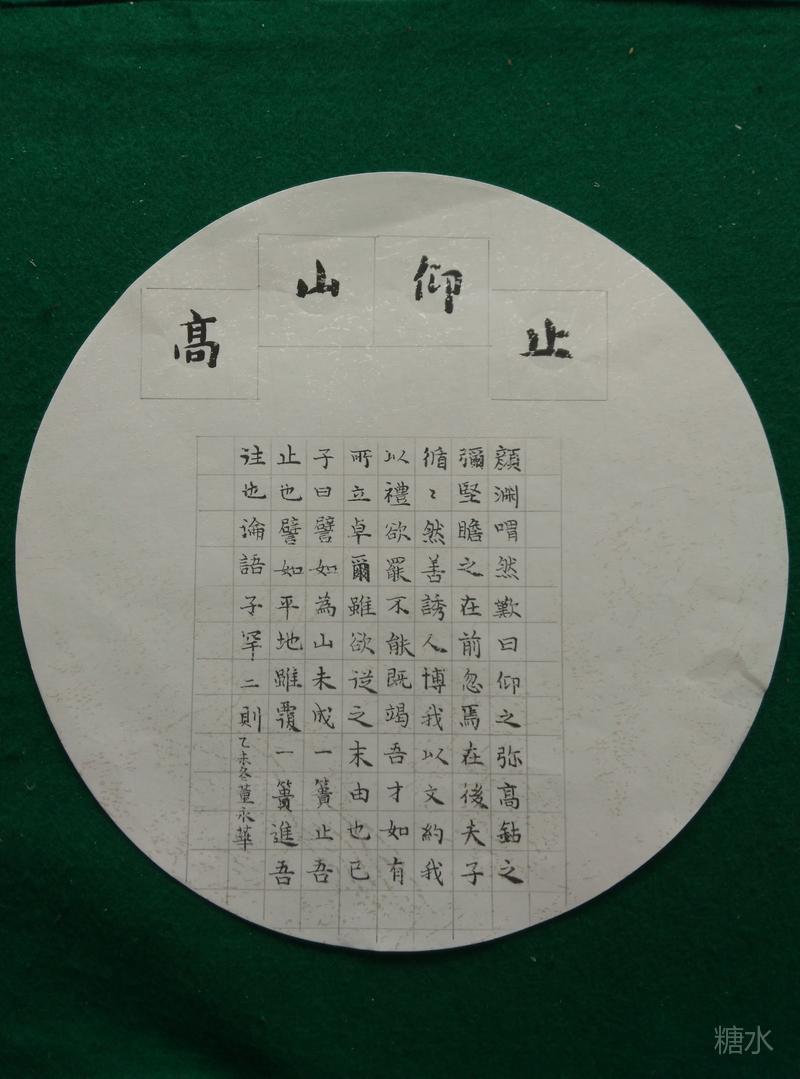 高山仰止
顏渊喟然歎曰仰之弥高鉆之
彌堅瞻之在前忽焉在後夫子
循〻然善誘人博我以文約我
以禮欲罷不能既竭吾才如有
所立卓爾雖欲從之末由也已
子曰譬如為山未成一簣止吾
止也譬如平地雖覆一簣進吾
往也論語子罕二則乙未冬董永華
糖水